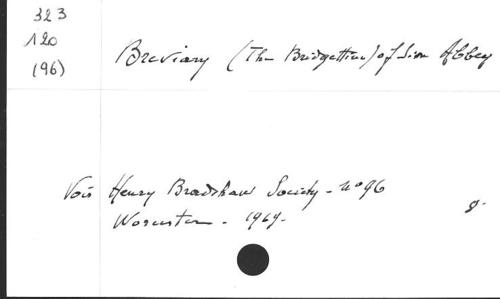 323
120
(96)
Breviary (The Bridgettine) of Sion Abbey
Voir Henry Bradshaw Society - nº 96
Worcester - 1969.
8º